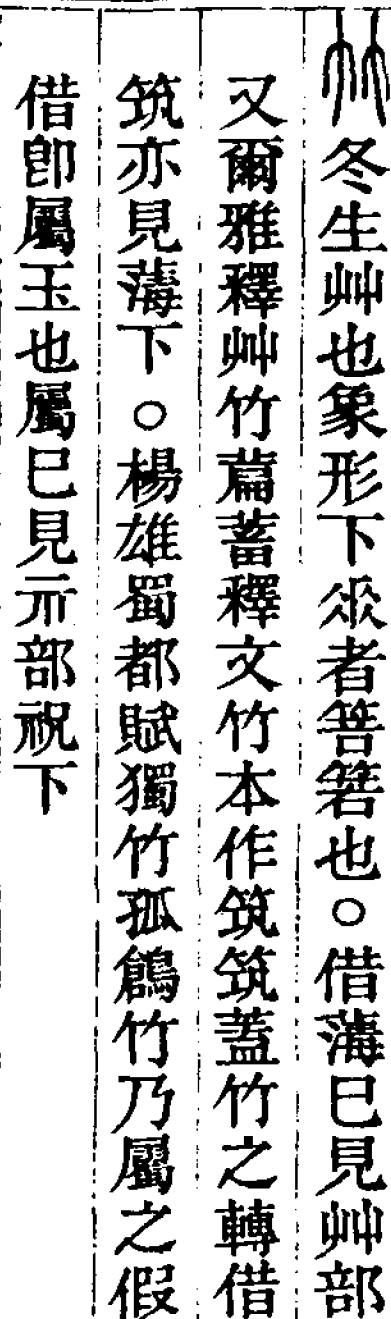 竹冬生艸也象形下𠂹者箁箬也○借薄巳見艸部
又爾雅釋艸竹萹蓄釋文竹本作筑筑蓋竹之轉借
筑亦見薄下○楊雄蜀都賦獨竹孤鶬竹乃屬之假
借卽屬玉也屬巳見示部祝下